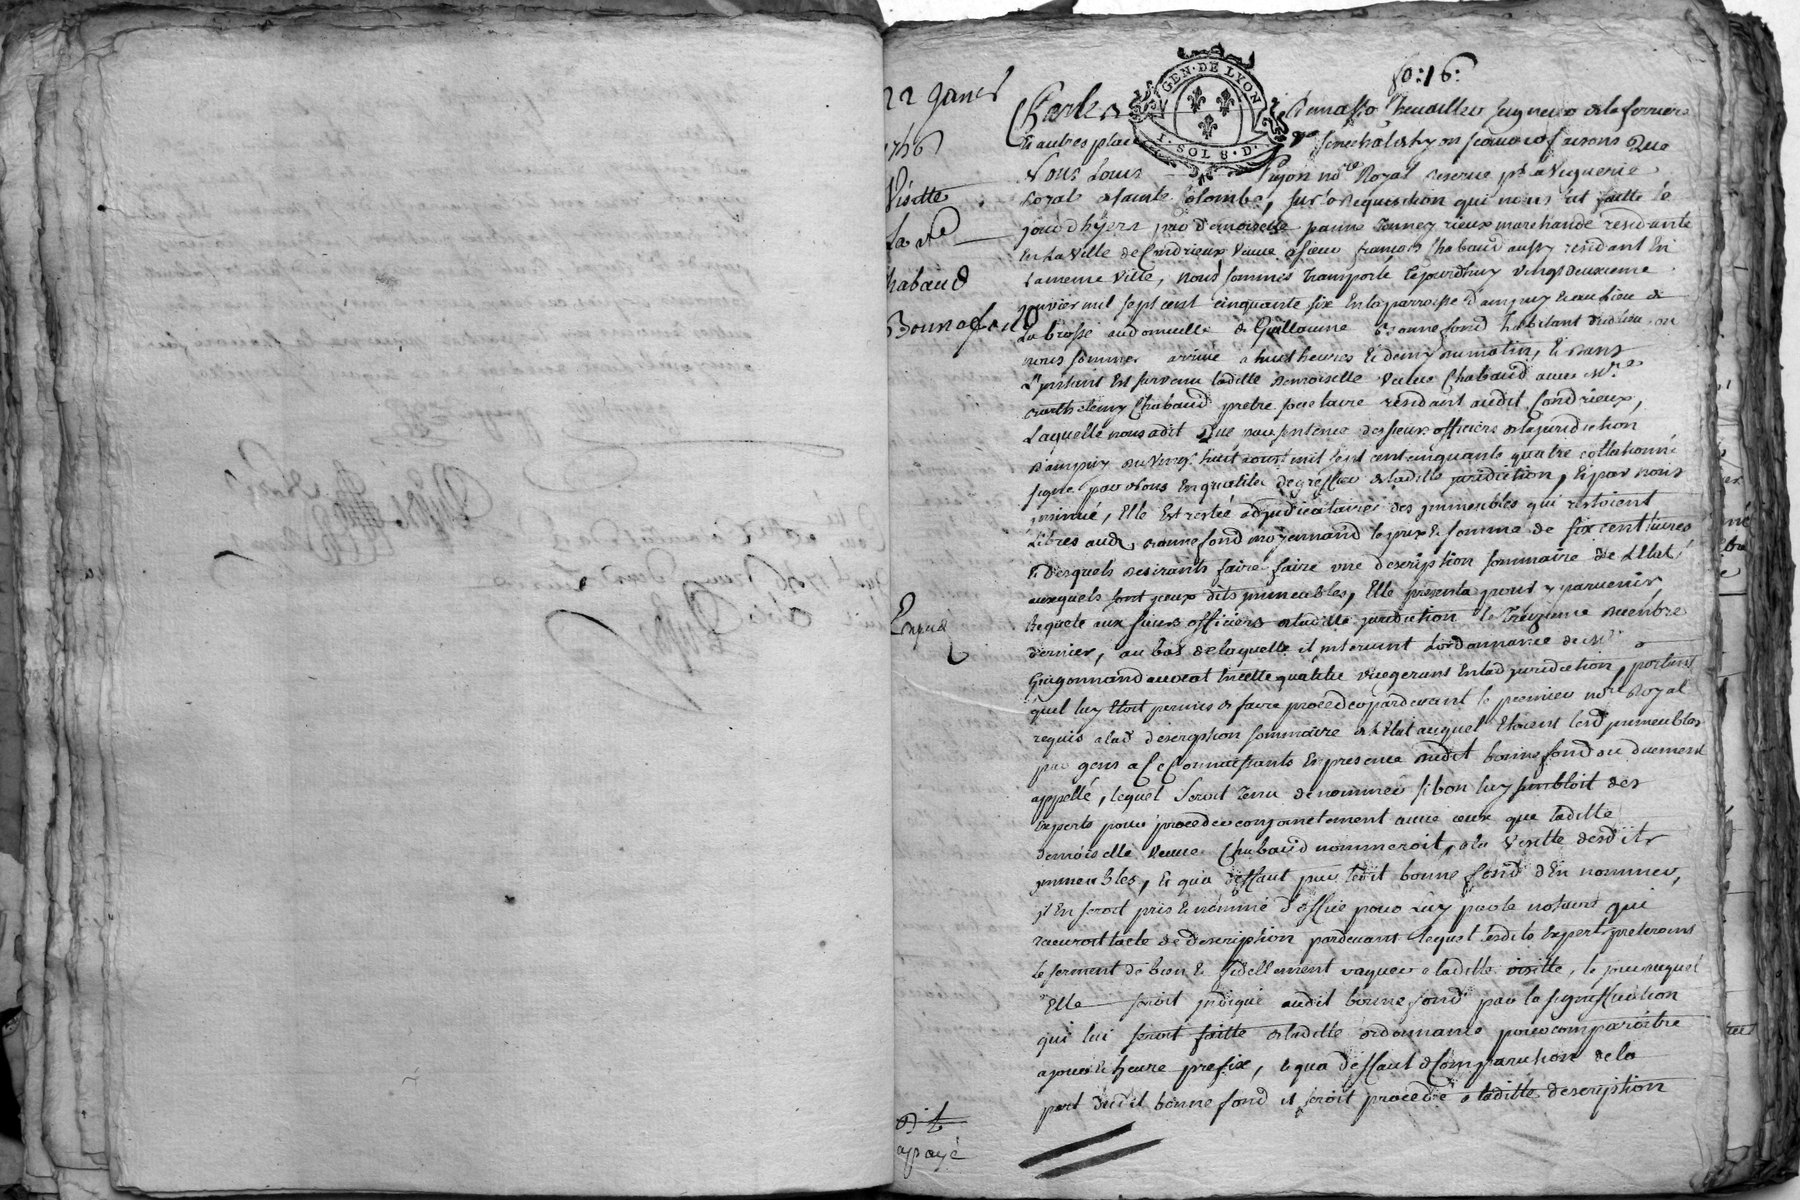 fo: 16:
22 Janer
1756
Visitte
La ve
Chabaud
Bonnefond
Expedi
GEN. DE LYON
1. SOL 8. D.
Charles Chevallier seigneur de la ferriere
et autres places senechal de Lyon scavoir faisons Que
Nous Louis Pujon nore Royal reservé pr la viguerie
Royale de Sainte Colombe, sur la requisition qui nous ut faitte le
jour d'hyers par Demoiselle marchande residante
en La Ville de Condrieux veuve de sieur françois Chabaud aussy residant En
La meme ville, Nous sommes transporté cejourdhuy vingt deuxieme
janvier mil sept cent cinquante six En la parroisse d'ampuy et au Lieu de
La brosse au domicille de Guillaume Bonnefond habitant dudit lieu ou
nous sommes arrivé a huit heures et demy du matin, Et dans
L'instant Est survenu ladite demoiselle veuve Chabaud avec Mre
Barthelemy Chabaud pretre societaire residant audit Condrieux,
Laquelle nous a dit Que par sentence des sieurs officiers de la juridiction
d'ampuy du vingt huit aoust mil sept cent cinquante quatre collationné
signé par Nous En qualité de greffier de ladite juridiction, Et par nous
insinué, Elle Est restée adjudicataires des jmmeubles qui restoient
Libres aud. bonnefond moyennand le prix et somme de six cent livres
Et desquels desirants faire faire une description sommaire de L'Etat
auxquels sont jceux dits jmmeubles, Elle presenta pour y parvenir
Requete aux sieurs officiers de ladite juridiction le treizieme decenbre
dernier, au bas de laquelle il intervint Lordonnance de Mr
Guigonnand avocat En cette qualité vicegerant En lad juridiction, portant
qu'il luy Etoit permis de faire proceder pardevant le premier nore Royal
requis a lad description sommaire de L'Etat auquel Etoient lesd jmmeubles
par gens a ce Connoissants En presence dudit bonnefond ou duement
appellé, lequel seroit tenu de nommer si bon luy sembloit des
Experts pour proceder conjointement avec ceux que ladite
demoiselle veuve Chabaud nommeroit, a la visitte desdits
jmmeubles, Et qu'a deffaut par ledit bonnefond d'En nommer,
jl En seroit pris et nommé d'office pour Luy par le notaire qui
recevroit lacte de description pardevant lequel lesdits Experts preteroint
le serment de bien et fidellement vaquer a ladite visitte, le jour auquel
Elle seroit jndiqué audit bonnefond par la signiffication
qui lui seroit faitte de ladite ordonnance pour comparoitre
a jour et heure prefix, et qu'a deffaut de Comparution de la
part dudit bonnefond il seroit procedé a ladite description
apayé